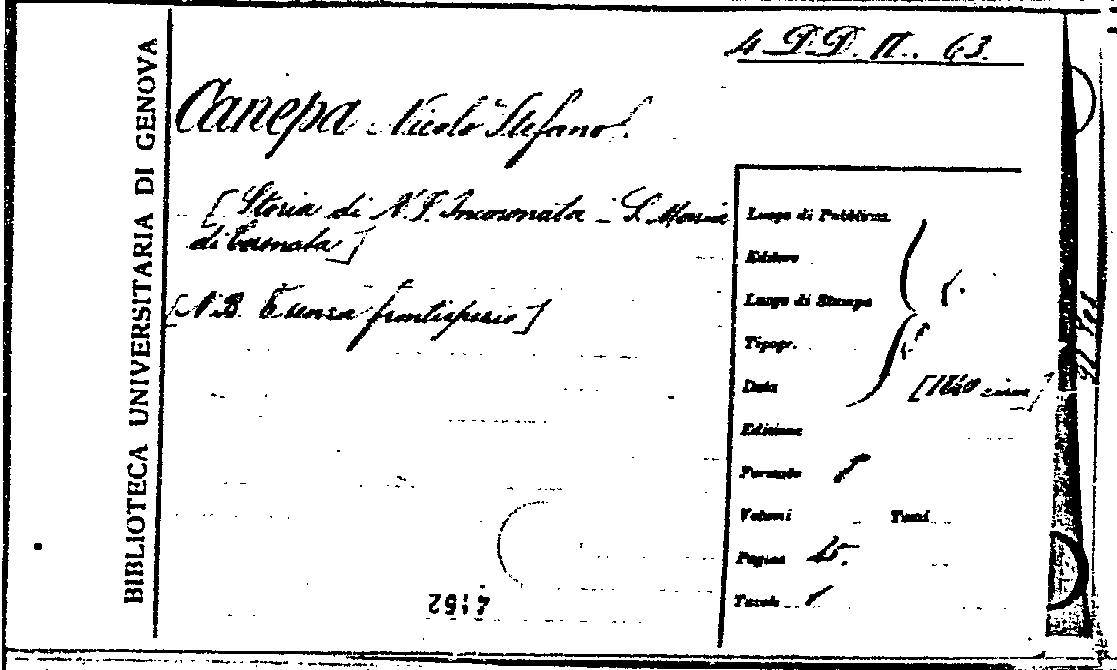 4 DD. II. 63.
BIBLIOTECA UNIVERSITARIA DI GENOVA
Canepa Nicolò Stefano.
[Storia di N. S. Incoronata - S. Maria
di Coronata]
[N.B. È senza frontispizio]
Luogo di Pubblicaz.
Editore
Luogo di Stampa
Tipogr.
Data [1860 circa]
Edizione
Formato 8
Volumi Tomi
Pagine 45.
Tavole /
4152